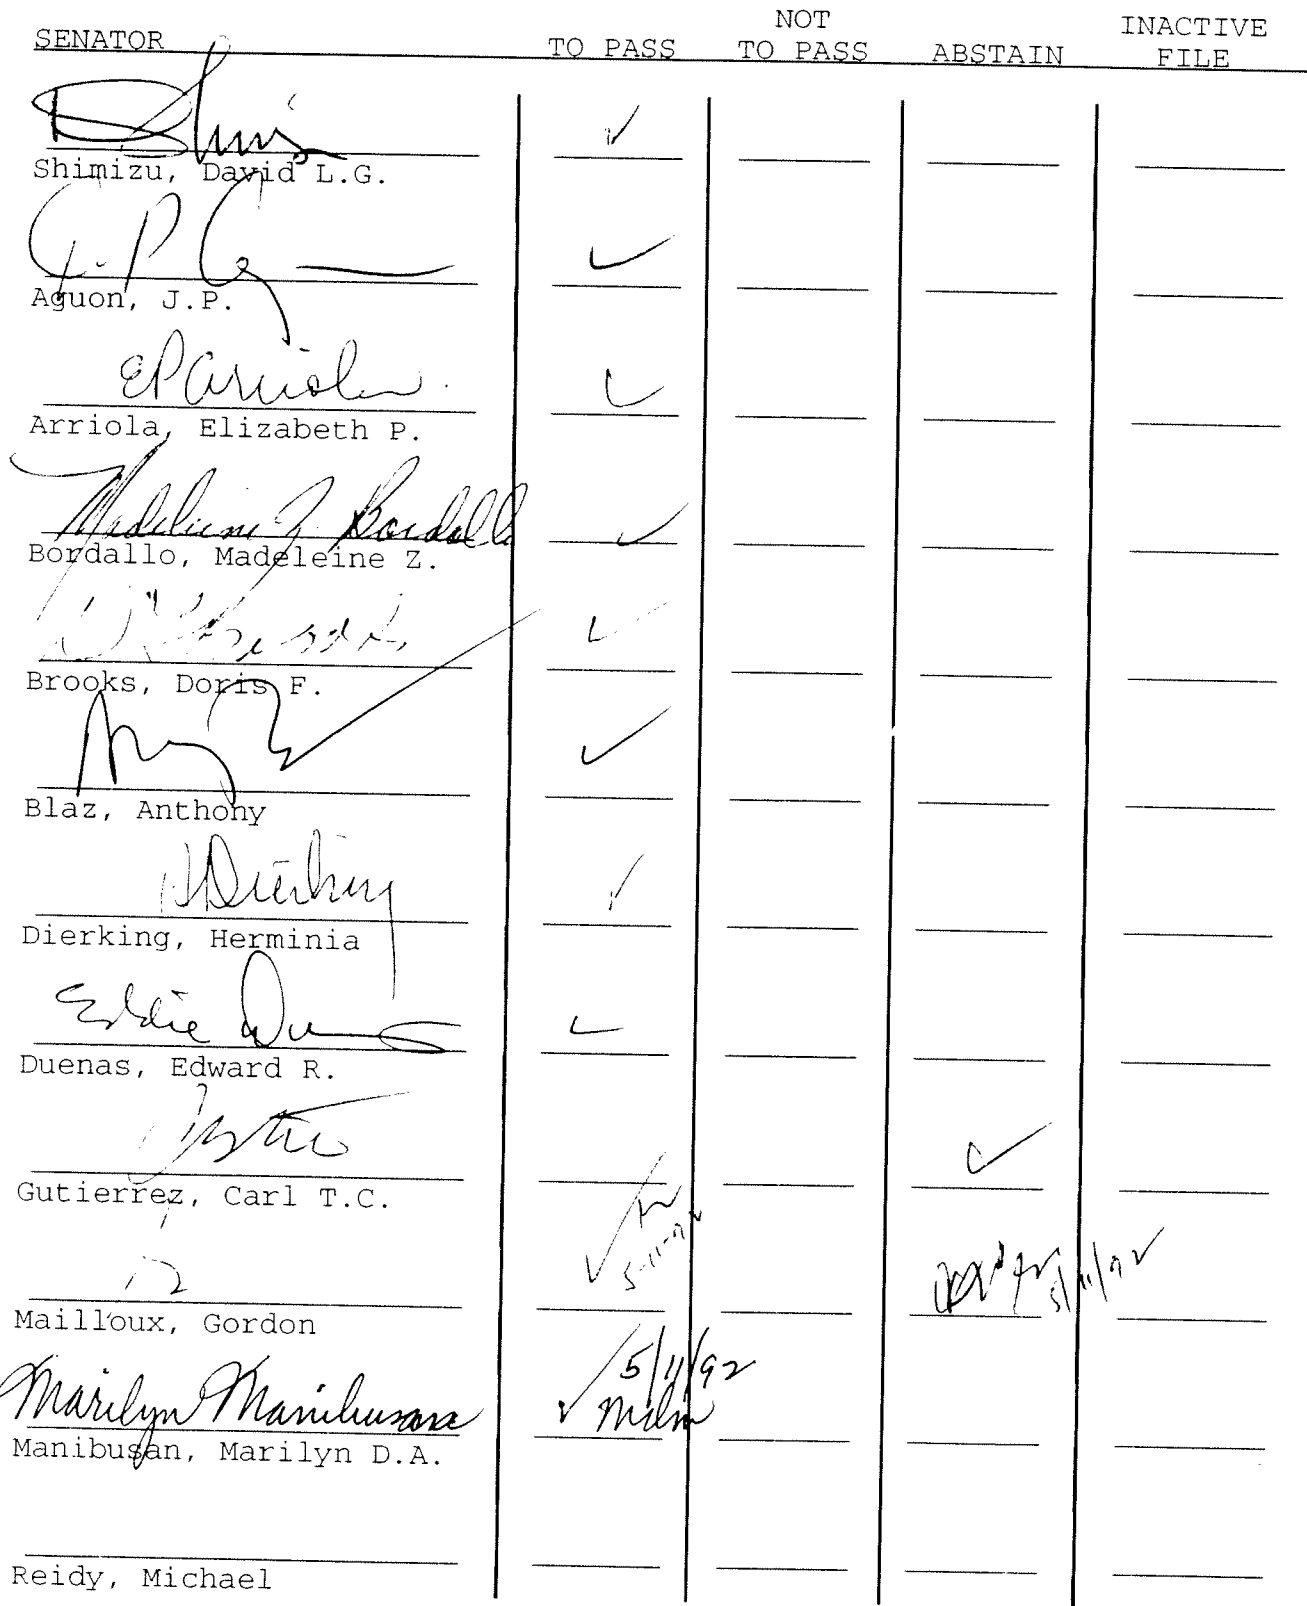 SENATOR TO PASS NOT TO PASS ABSTAIN INACTIVE FILE
✓
Shimizu, David L.G.
J.P. ✓
Aguon, J.P.
EP Arriola ✓
Arriola, Elizabeth P.
Madeleine Z. Bordallo ✓
Bordallo, Madeleine Z.
✓
Brooks, Doris F.
✓
Blaz, Anthony
H Dierking ✓
Dierking, Herminia
Eddie Duenas ✓
Duenas, Edward R.
✓
Gutierrez, Carl T.C.
✓ 5-11-92 5/11/92
Mailloux, Gordon
Marilyn Manibusan ✓ 5/11/92
Manibusan, Marilyn D.A.
Reidy, Michael